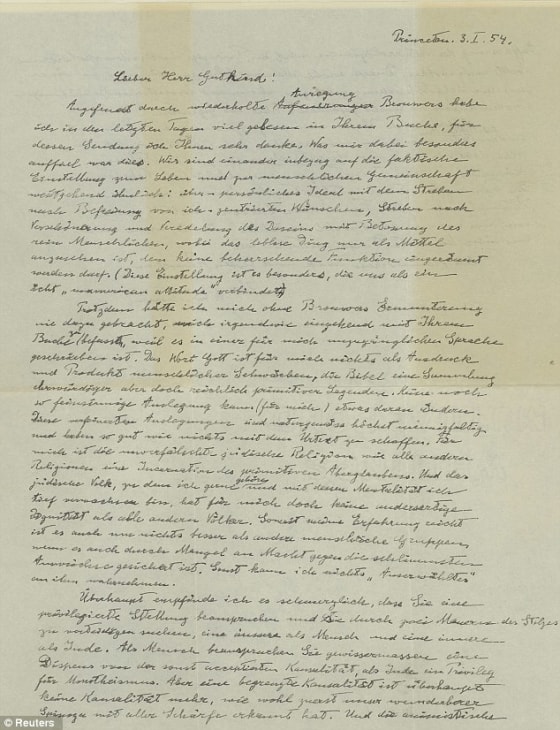 Princeton. 3. I. 54.
Lieber Herr Gutkind!
Anregung
Angefeuert durch wiederholte Brouwers habe
ich in den letzten Tagen viel gelesen in Ihrem Buche, für
dessen Sendung ich Ihnen sehr danke. Was mir dabei besonders
auffiel war dies. Wir sind einander inbezug auf die faktische
Einstellung zum Leben und zur menschlichen Gemeinschaft
weitgehend ähnlich: persönliches Ideal mit dem Streben
nach Befreiung von ich-zentrierten Wünschen, Streben nach
Verschönerung und Veredelung des Daseins mit Betonung des
rein Menschlichen, wobei das leblose Ding nur als Mittel
anzusehen ist, dem keine beherrschende Funktion eingeräumt
werden darf. (Diese Einstellung ist es besonders, die uns als ein
echt „unamerican attitude" verbindet)
Trotzdem hätte ich mich ohne Brouwers Ermunterung
nie dazu gebracht, mich irgendwie eingehend mit Ihrem
Buche zu befassen, weil es in einer für mich unzugänglichen Sprache
geschrieben ist. Das Wort Gott ist für mich nichts als Ausdruck
und Produkt menschlicher Schwächen, die Bibel eine Sammlung
ehrwürdiger aber doch reichlich primitiver Legenden. Keine noch
so feinsinnige Auslegung kann (für mich) etwas daran ändern.
Diese verfeinerten Auslegungen sind naturgemäss höchst mannigfaltig
und haben so gut wie nichts mit dem Urtext zu schaffen. Für
mich ist die unverfälschte jüdische Religion wie alle anderen
Religionen eine Incarnation des primitiven Aberglaubens. Und das
jüdische Volk, zu dem ich gerne gehöre und mit dessen Mentalität ich
tief verwachsen bin, hat für mich doch keine andersartige
Dignität als alle anderen Völker. Soweit meine Erfahrung reicht
ist es auch um nichts besser als andere menschliche Gruppen
wenn es auch durch Mangel an Macht gegen die schlimmsten
Auswüchse gesichert ist. Sonst kann ich nichts „Auserwähltes"
an ihm wahrnehmen.
Überhaupt empfinde ich es schmerzlich, dass Sie eine
privilegierte Stellung beanspruchen und sie durch zwei Mauern des Stolzes
zu verteidigen suchen, eine äussere als Mensch und eine innere
als Jude. Als Mensch beanspruchen Sie gewissermassen eine
Dispens von der sonst acceptierten Kausalität, als Jude ein Privileg
für Monotheismus. Aber eine begrenzte Kausalität ist überhaupt
keine Kausalität mehr, wie wohl zuerst unser wunderbarer
Spinoza mit aller Schärfe erkannt hat. Und die animistische
© Reuters